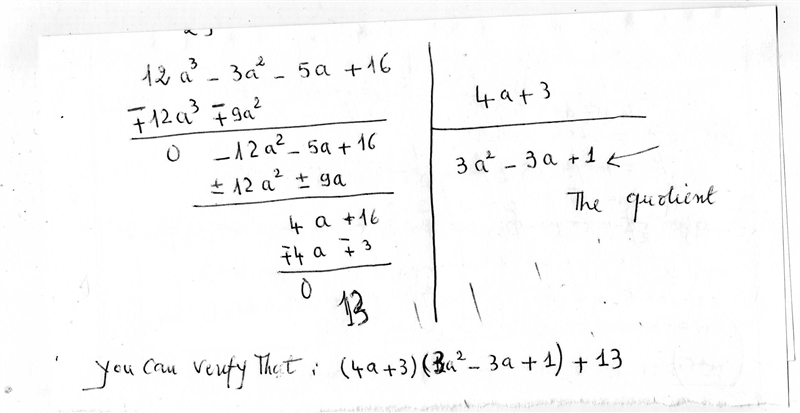 12a³ - 3a² - 5a + 16
∓12a³ ∓9a²
0 -12a² - 5a + 16
± 12a² ± 9a
4a + 16
∓4a ∓ 3
0 13
4a+3
3a² - 3a + 1 ←
The quotient
you can verify that : (4a+3)(3a² - 3a + 1) + 13